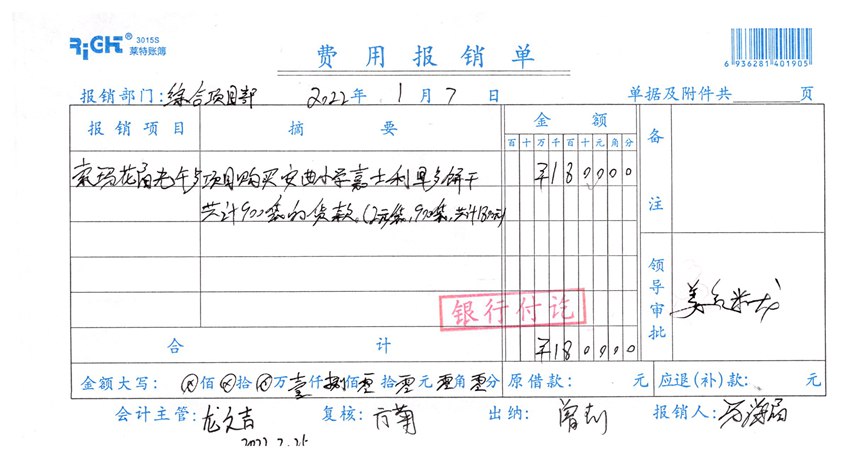 RiGHT® 3015S 莱特账簿
费用报销单
6 936281 401905
报销部门:综合项目部 2022年 1月 7日 单据及附件共 页
报销项目 摘要 金额 备注
百十万千百十元角分
项目购买安曲小学嘉士利早餐饼干 ¥180000
共计900袋的货款。(2元/袋,900袋,共计1800元)
银行付讫
领导审批
合计 ¥180000
金额大写:ⓧ佰ⓧ拾ⓧ万壹仟捌佰零拾零元零角零分 原借款: 元 应退(补)款: 元
会计主管:龙文吉 复核:方菊 出纳:曾 报销人:
2022.2.25